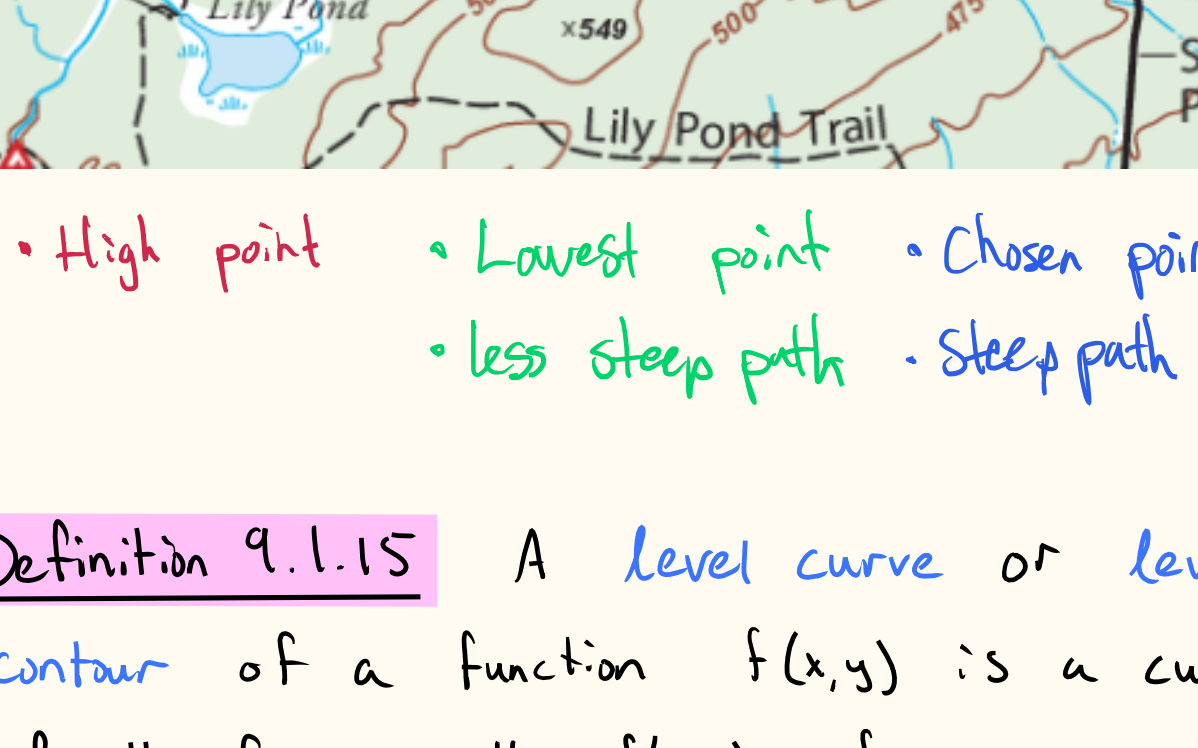 Lily Pond
×549
500
475
Lily Pond Trail
• High point • Lowest point • Chosen
• less steep path • Steep path
Definition 9.1.15 A level curve or
contour of a function f(x,y) is a